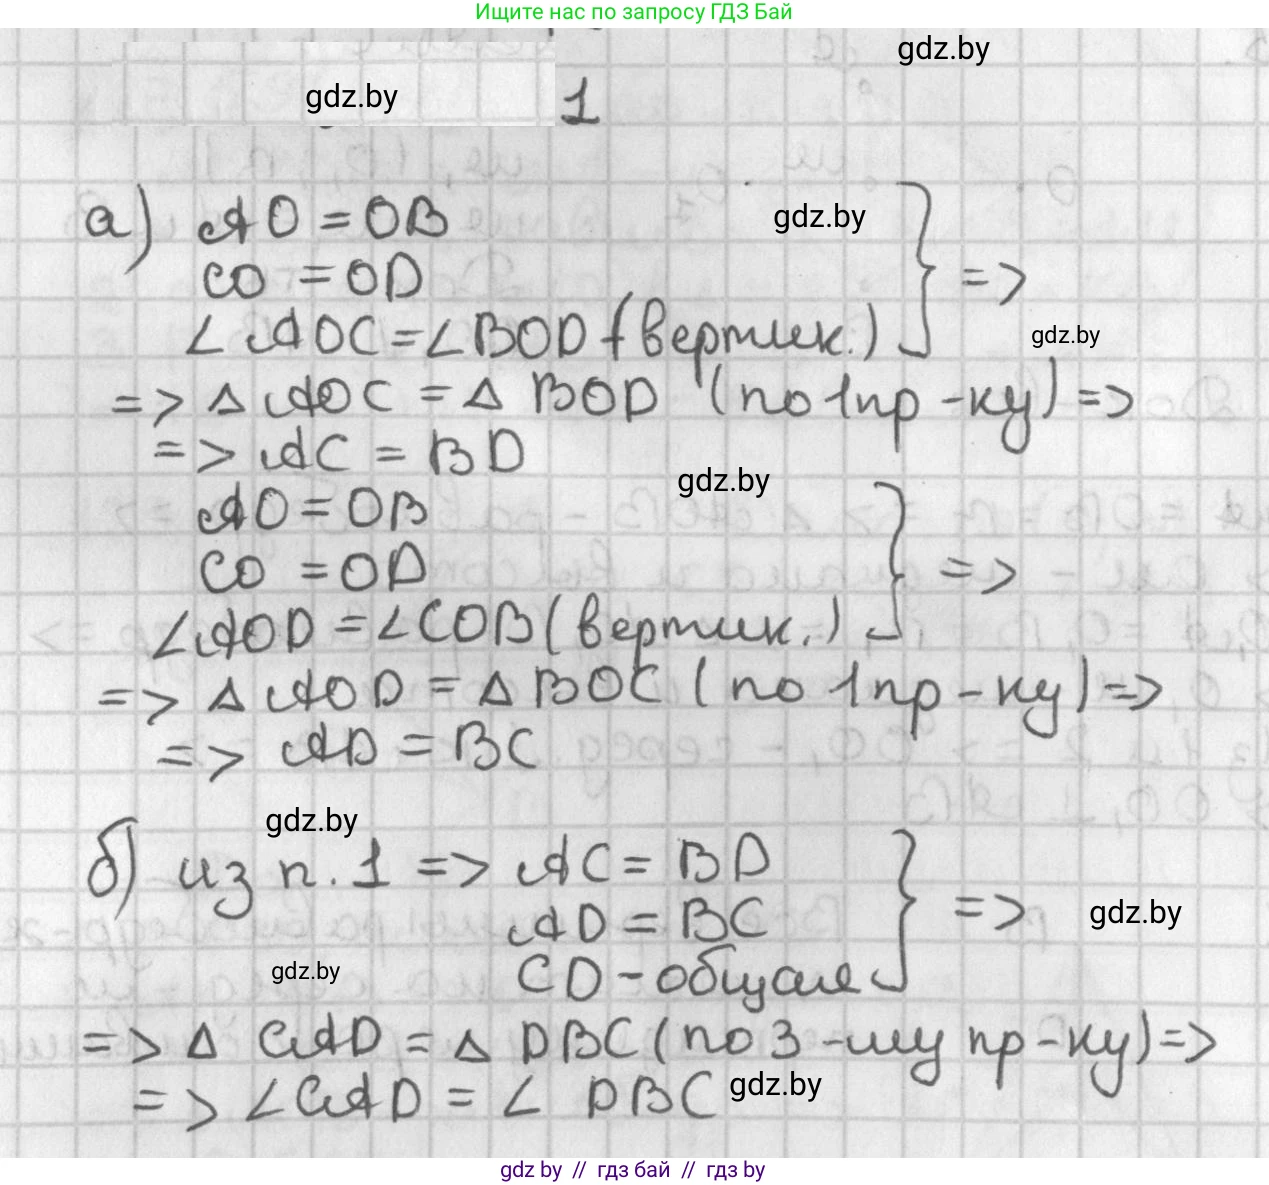 Ищите нас по запросу ГДЗ Бай
gdz.by
gdz.by 1
а) AO = OB gdz.by
CO = OD } =>
∠AOC = ∠BOD (вертик.) gdz.by
=> Δ AOC = Δ BOD (по 1 пр-ку) =>
=> AC = BD
gdz.by
AO = OB
CO = OD } =>
∠AOD = ∠COB (вертик.)
=> Δ AOD = Δ BOC (по 1 пр-ку) =>
=> AD = BC
gdz.by
б) из п.1 => AC = BD
AD = BC } => gdz.by
gdz.by CD - общая
=> Δ CAD = Δ DBC (по 3-му пр-ку) =>
=> ∠CAD = ∠ DBC gdz.by
gdz by // гдз бай // гдз by